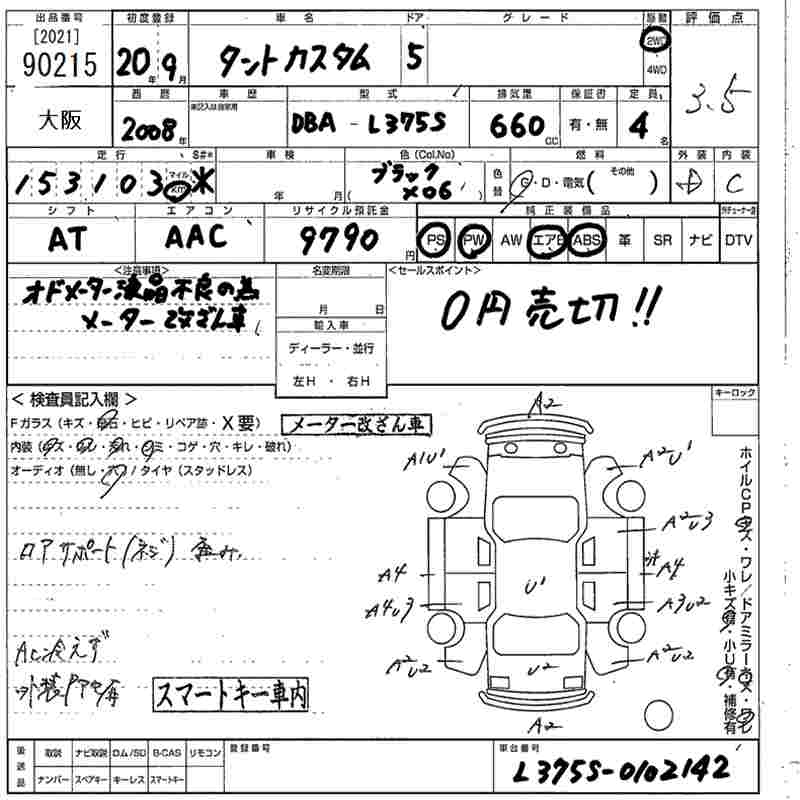 出品番号 初度登録 車名 ドア グレード 駆動 評価点
[2021]
90215 20年9月 タントカスタム 5 2WD 4WD 3.5
大阪 西暦 車歴 型式 排気量 保証書 定員
未記入は自家用
2008年 DBA-L375S 660CC 有・無 4名
走行 S#* 車検 色(Col,No) 燃料 外装 内装
153103 マイル km * 年 月 ブラック X06 色替 G・D・電気( その他 ) D C
シフト エアコン リサイクル預託金 純正装備品
AT AAC 9790円 PS PW AW エアB ABS 革 SR ナビ DTV
<注意事項> 名変期限 <セールスポイント>
オドメーター液晶不良の為
メーター改ざん車
月 日
0円売切!!
輸入車
ディーラー・並行
左H・右H
<検査員記入欄> キーロック
Fガラス(キズ・飛石・ヒビ・リペア跡・X要)
メーター改ざん車
内装(キズ・ヨレ・汚れ・シミ・コゲ・穴・キレ・破れ)
オーディオ(無し・穴)/タイヤ(スタッドレス)
A2
A1U1 A2U1
A2U3
ロアサポート(ネジ)
A4 A4
U1
A4U3 A3U2
A2U2 A2U2
U2
A2
AC冷えず
スマートキー車内
ホイルCPキズ・ワレ/ドアミラーキズ・ワレ
小キズ有・小U有・補修有
後送品 取説 ナビ取説 ロム/SD B-CAS リモコン
ナンバー スペアキー キーレス スマートキー
登録番号 車台番号
L375S-0102142